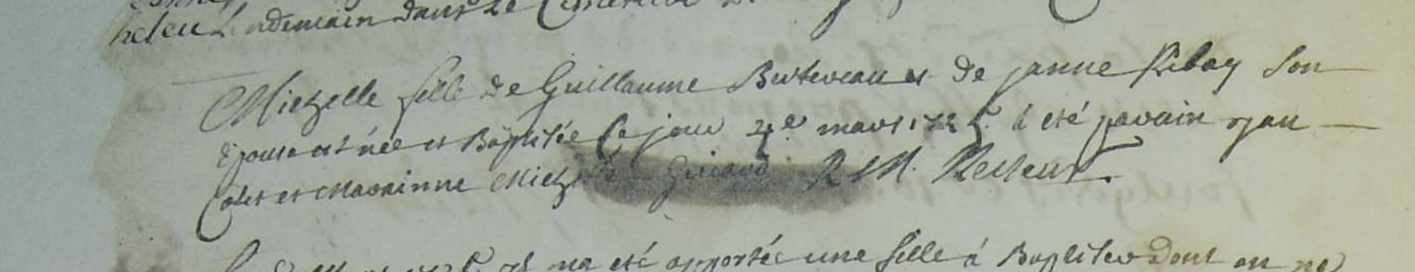 lendemain dans Le Cimetiere
Michelle fille de Guillaume Berteveau et de janne Ribay Son
Epouse est née et Baptisée Ce jour 4e mars 1725 à eté parain jan
Colet et Marainne Michelle Guicard R M. Recteur.
il m'a eté apportée une fille à Baptiser Dont on ne